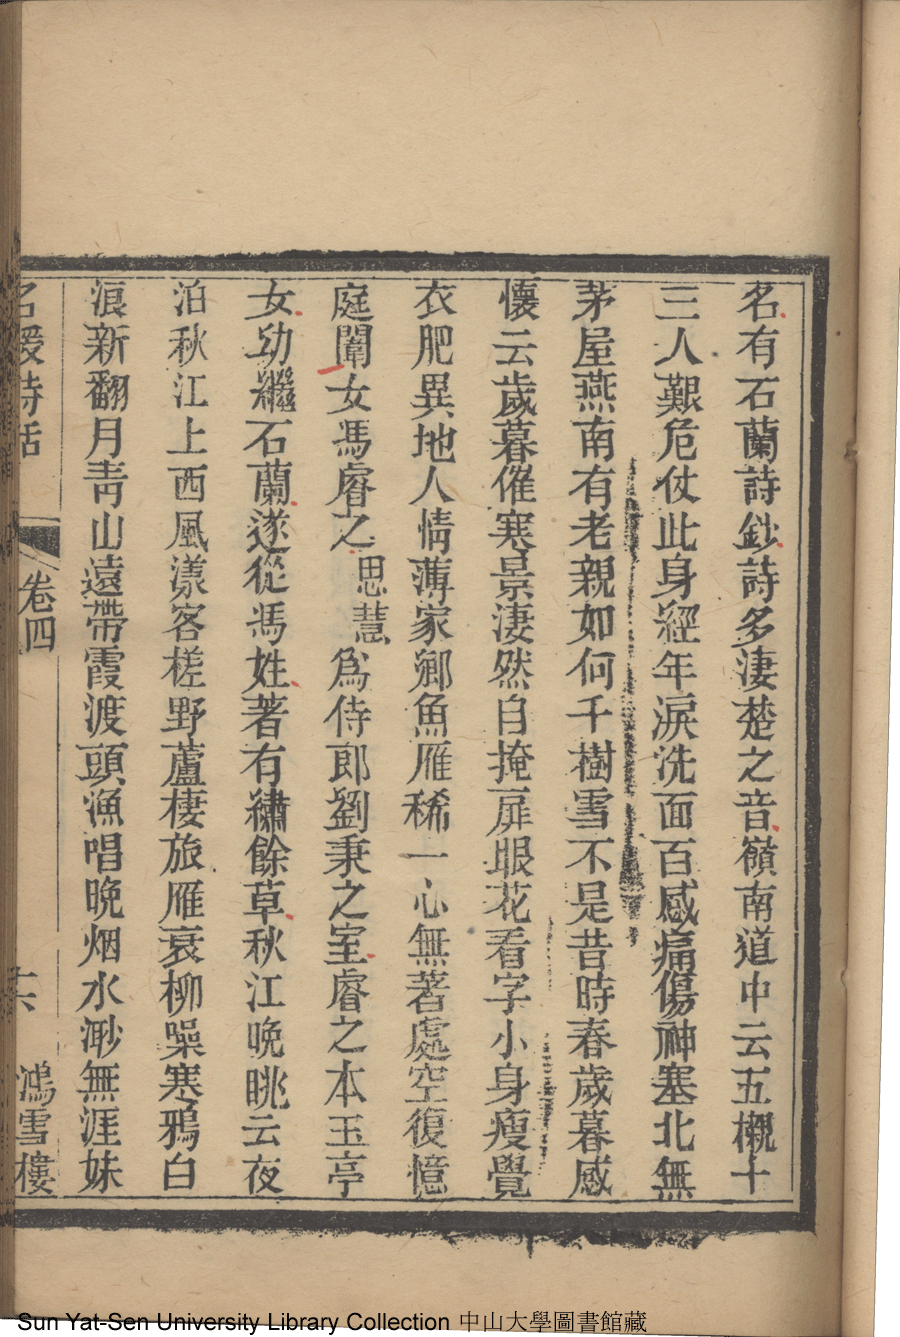 名有石蘭詩鈔詩多淒楚之音嶺南道中云五櫬十
三人艱危仗此身經年淚洗面百感痛傷神塞北無
茅屋燕南有老親如何千樹雪不是昔時春歲暮感
懷云歲暮催寒景淒然自掩扉眼花看字小身瘦覺
衣肥異地人情薄家鄉魚雁稀一心無著處空復憶
庭闈女馮睿之思慧爲侍郎劉秉之室睿之本玉亭
女幼繼石蘭遂從馮姓著有繡餘草秋江晚眺云夜
泊秋江上西風漾客槎野蘆棲旅雁衰柳噪寒鴉白
浪新翻月青山遠帶霞渡頭漁唱晚烟水渺無涯妹
名媛詩話 卷四 十六 鴻雪樓
Sun Yat-Sen University Library Collection 中山大學圖書館藏